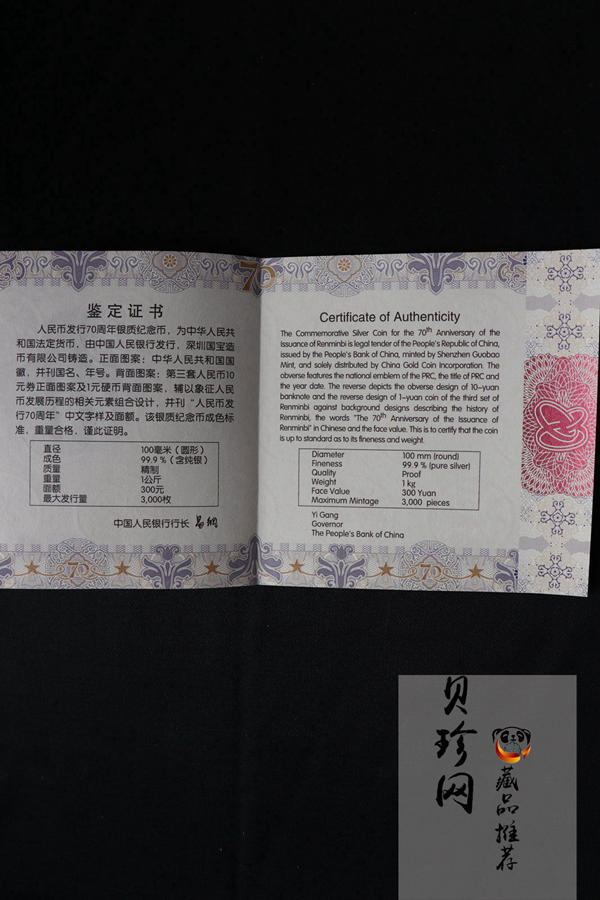 70
鉴定证书
人民币发行70周年银质纪念币，为中华人民共
和国法定货币，由中国人民银行发行，深圳国宝造
币有限公司铸造。正面图案：中华人民共和国国
徽，并刊国名、年号。背面图案：第三套人民币10
元券正面图案及1元硬币背面图案，辅以象征人民
币发展历程的相关元素组合设计，并刊“人民币发
行70周年”中文字样及面额。该银质纪念币成色标
准，重量合格，谨此证明。
直径 100毫米（圆形）
成色 99.9％（含纯银）
质量 精制
重量 1公斤
面额 300元
最大发行量 3,000枚
中国人民银行行长 易纲
70
Certificate of Authenticity
The Commemorative Silver Coin for the 70th Anniversary of the
Issuance of Renminbi is legal tender of the People's Republic of China,
issued by the People's Bank of China, minted by Shenzhen Guobao
Mint, and solely distributed by China Gold Coin Incorporation. The
obverse features the national emblem of the PRC, the title of PRC and
the year date. The reverse depicts the obverse design of 10-yuan
banknote and the reverse design of 1-yuan coin of the third set of
Renminbi against background designs describing the history of
Renminbi, the words "The 70th Anniversary of the Issuance of
Renminbi" in Chinese and the face value. This is to certify that the coin
is up to standard as to its fineness and weight.
Diameter 100 mm (round)
Fineness 99.9 % (pure silver)
Quality Proof
Weight 1 kg
Face Value 300 Yuan
Maximum Mintage 3,000 pieces
Yi Gang
Governor
The People's Bank of China
70
贝珍网
藏品推荐